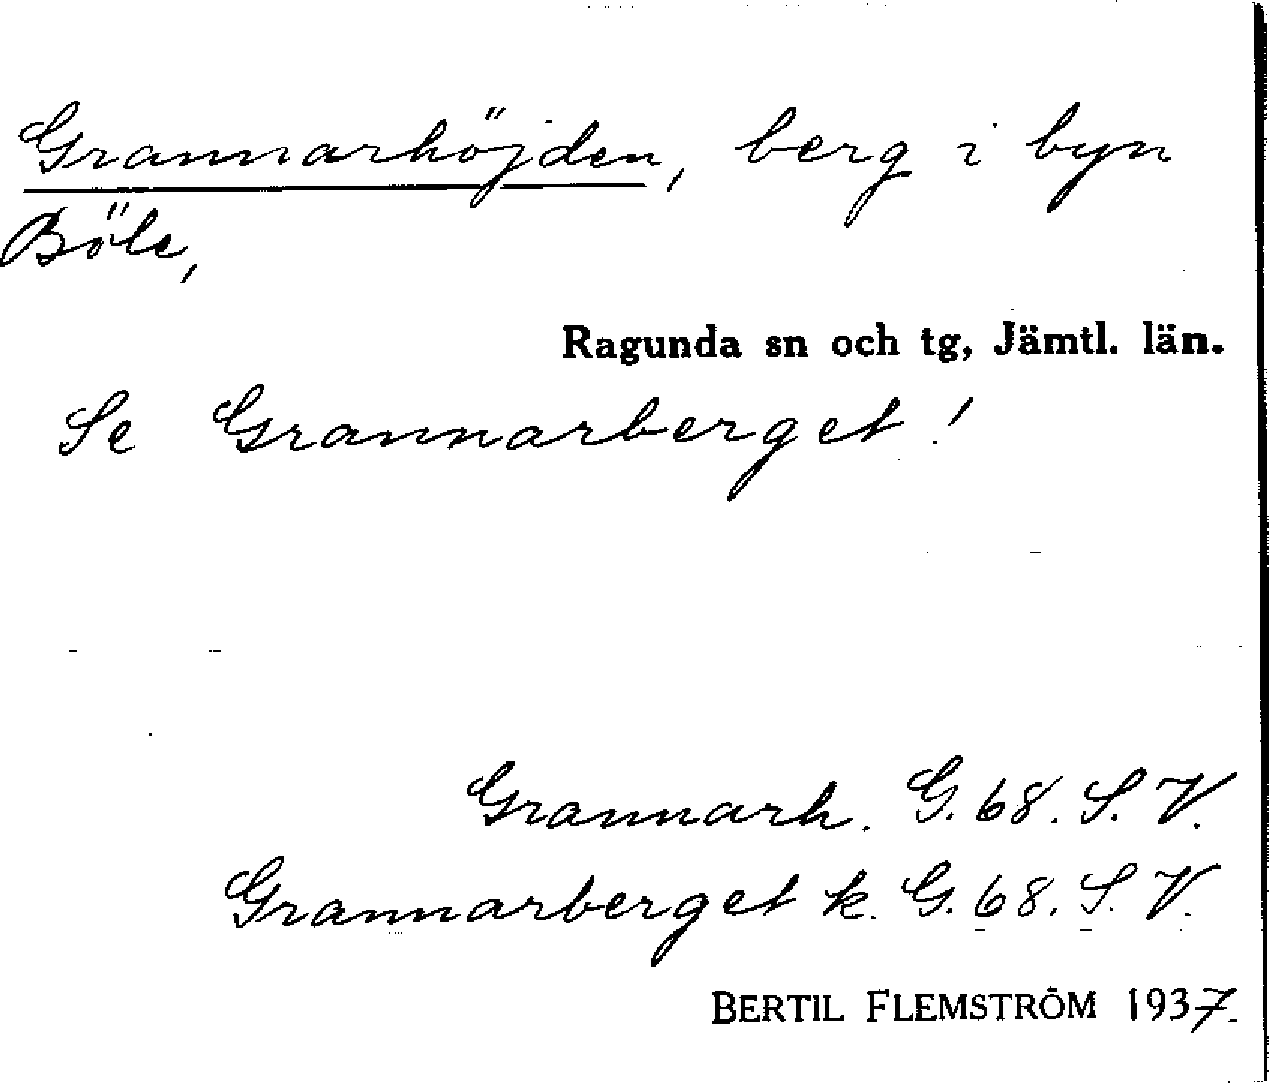 Grannarhöjden, berg i byn
Böle,
Ragunda sn och tg, Jämtl. län.
Se Grannarberget!
Grannarh. G. 68. S. V.
Grannarberget k. G. 68. S. V.
BERTIL FLEMSTRÖM 1937.